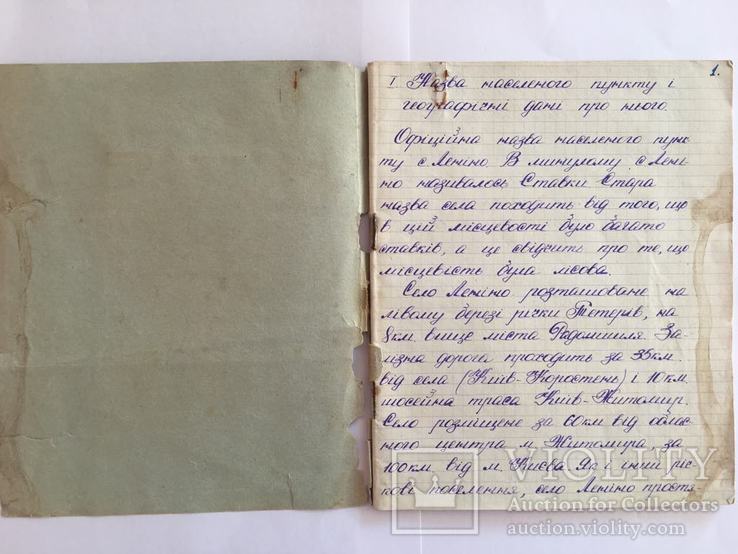 1.
I. Назва населеного пункту і
географічні дані про нього.
Офіційна назва населеного пунк-
ту с. Леніно В минулому с. Лені
но називалось Ставки Стара
назва села походить від того, що
в цій місцевості було багато
ставків, а це свідчить про те, що
місцевість була лісова.
Село Леніно розташоване на
лівому березі річки Тетерів, на
8 км. вище міста Радомишля За-
ізна дорога проходить за 35 км.
від села (Київ-Коростень) і 10 км.
шосейна траса Київ-Житомир.
Село розміщене за 60 км від облас
ного центра м. Житомира за
100 км від м. Києва. Як і інші річ
кові поселення, село Леніно простя-
VIOLITY
Auction for Collectors
auction.violity.com